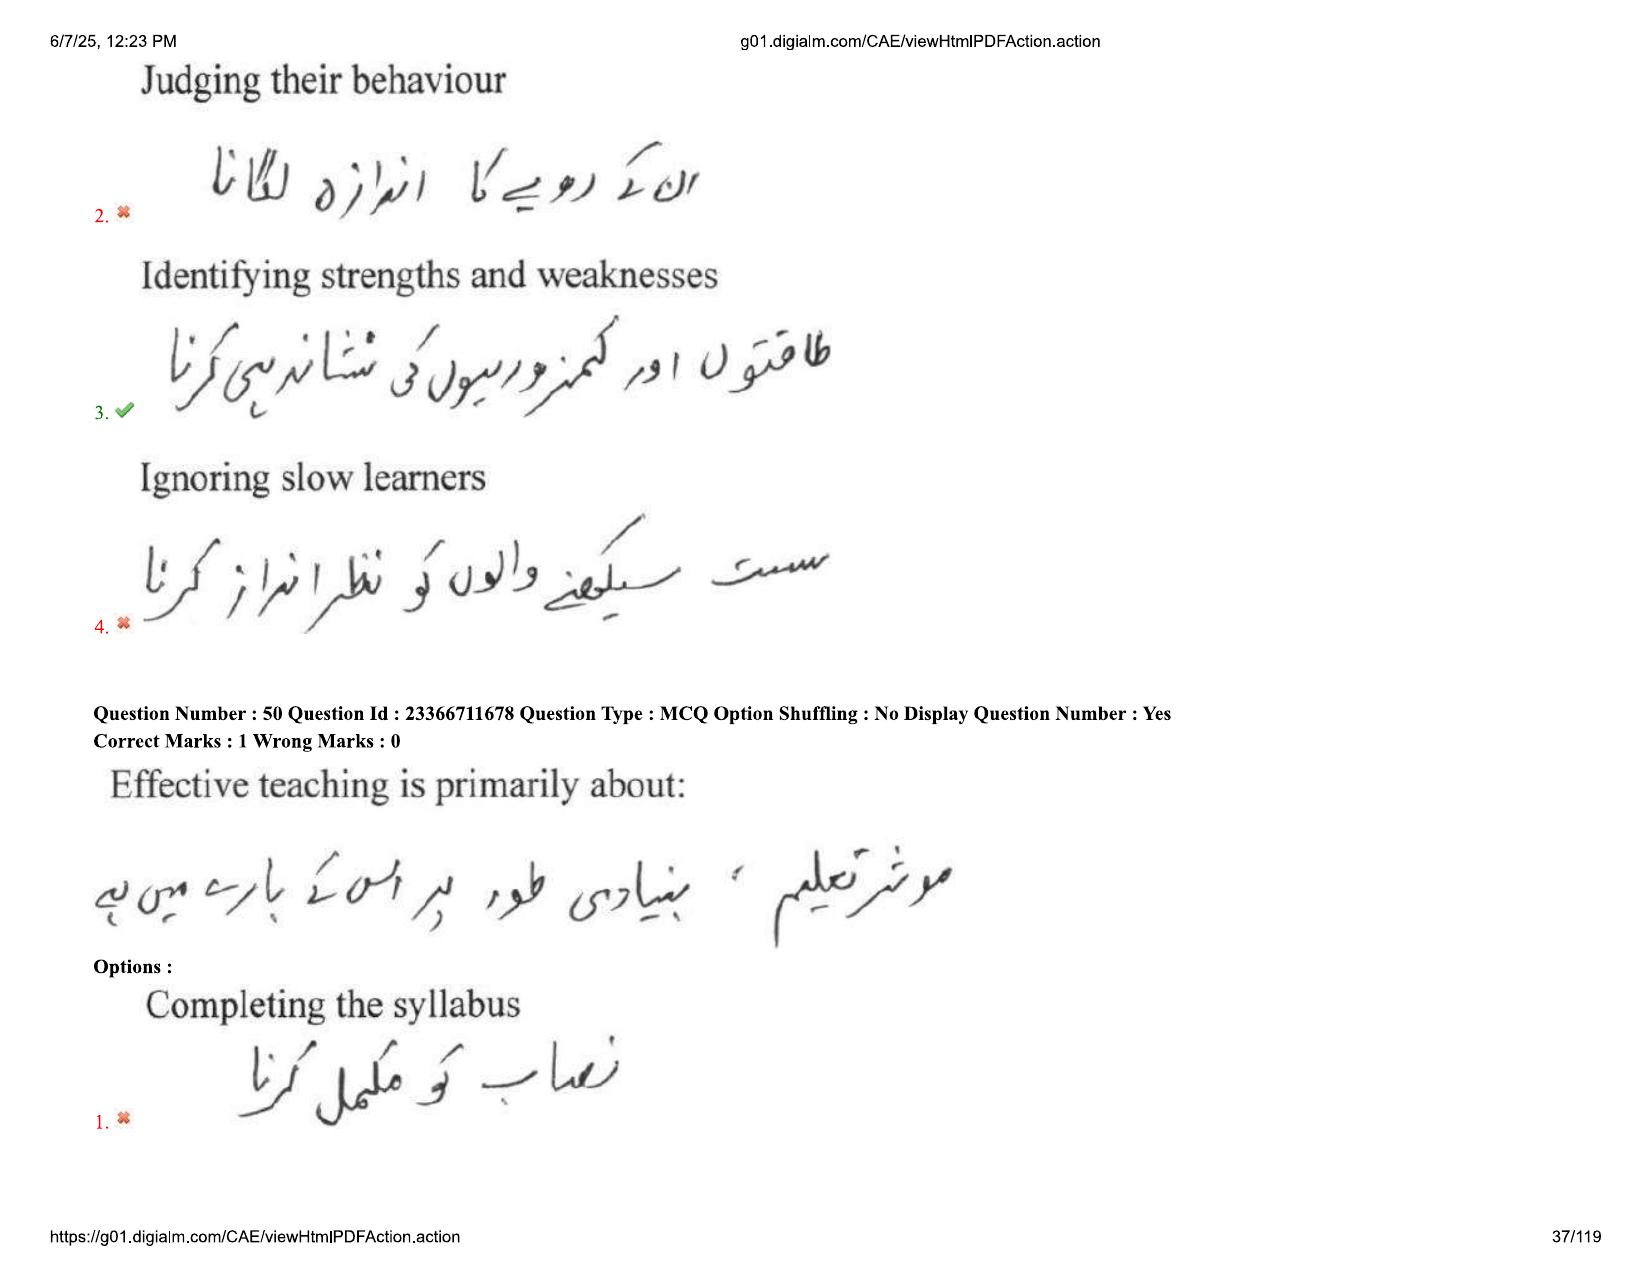 6/7/25, 12:23 PM g01.digialm.com/CAE/viewHtmlPDFAction.action
Judging their behaviour
ان کے رویے کا اندازہ لگانا
2.
Identifying strengths and weaknesses
طاقتوں اور کمزوریوں کی نشاندہی کرنا
3.
Ignoring slow learners
سست سیکھنے والوں کو نظر انداز کرنا
4.
Question Number : 50 Question Id : 23366711678 Question Type : MCQ Option Shuffling : No Display Question Number : Yes
Correct Marks : 1 Wrong Marks : 0
Effective teaching is primarily about:
موثر تعلیم ، بنیادی طور پر اس کے بارے میں ہے
Options :
Completing the syllabus
نصاب کو مکمل کرنا
1.
https://g01.digialm.com/CAE/viewHtmlPDFAction.action 37/119